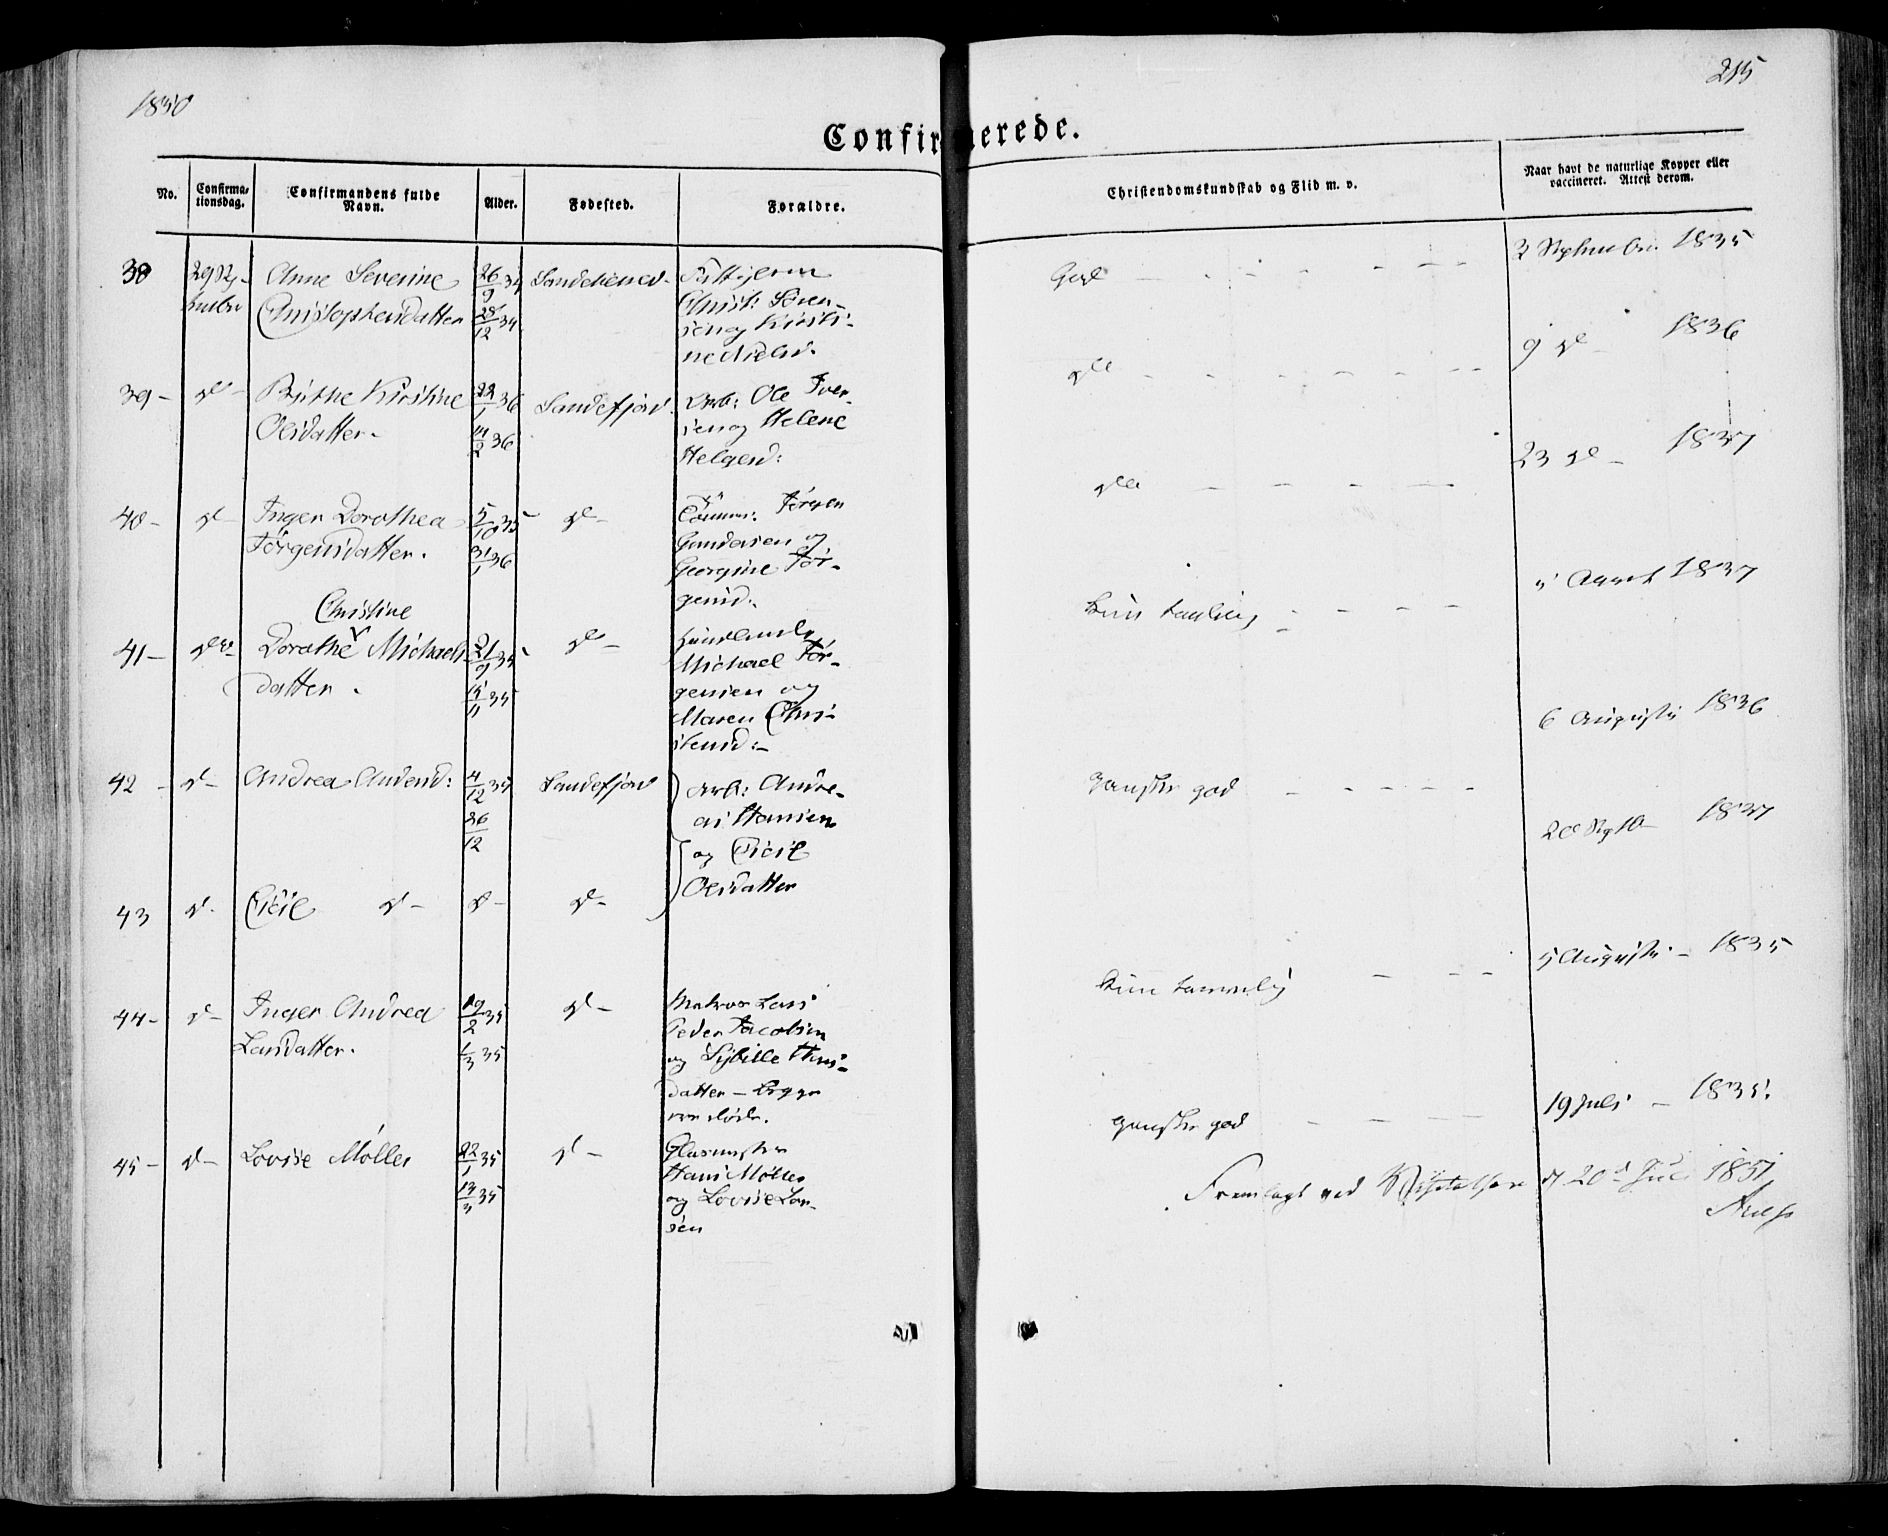 1850
215
Confirmerede.
No.
Confirma-
tionsdag.
Confirmandens fulde
Navn.
Alder.
Fødested.
Forældre.
Christendomskundskab og Flid m. v.
Naar havt de naturlige Kopper eller
vaccineret. Attest derom.
38
29 Sep-
tember
Anne Severine
Christophersdatter
26/9 34
28/12 34
Christ: Søren-
sen og Kirsti-
ne Nielsd.
God
3 Septembr. 1835
39 -
do -
Birthe Kirstine
Olsdatter.
22/1 36
14/2 36
Sandefjord.
Arb: Ole Iver-
sen og Helene
Helgesd:
do
9 do - 1836
40 -
do -
Inger Dorothea
Jörgensdatter.
5/10 35
31/1 36
do -
Tömmr. Jörgen
Gundersen og
Georgine Jör-
gensd.
do
23 do - 1837
41 -
do -
Christine
Dorothe Michaels-
datter.
21/9 35
15/11 35
do -
Michael Jör-
gensen og
Maren Chri-
stensd: -
kun taalelig
1837
42 -
do -
Andrea Andersd:
4/12 35
26/12
Sandefjord
Arb: Andre-
as Hansen
og Cicil
Olsdatter
ganske god
6 Augusti 1836
43
do -
Cicil do -
do -
do -
20 Septb 1837
44 -
do -
Inger Andrea
Larsdatter.
19/2 35
1/3 35
do -
Matros Lars
Peder Jacobsen
og Sybille Hans-
datter - begge
ere døde.
kun taaalelig
5 Augusti - 1835
45 -
do -
Lovise Møller
22/1 35
do -
Glasmester
Hans Møller
og Lovise Lar-
sen
ganske god
19 Juli - 1835.
Fremlagt ved Visitatsen d 20de Juli 1851